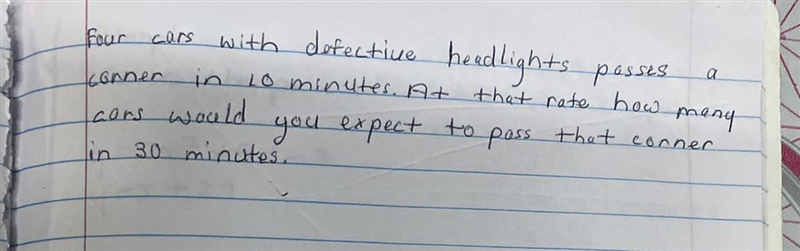 Four cars with defective headlights passes a
conner in 10 minutes. At that rate how many
cars would you expect to pass that conner
in 30 minutes.